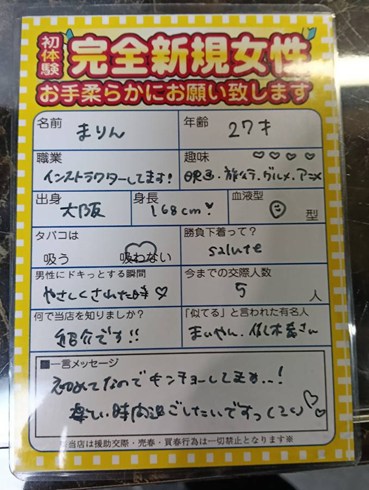 初体験
完全新規女性
お手柔らかにお願い致します
名前 まりん
年齢 27才
職業
インストラクターしてます!
趣味
映画・旅行・グルメ・アニメ
出身 大阪
身長 168cm!
血液型 型
タバコは
吸う 吸わない
勝負下着って?
salute
男性にドキっとする瞬間
やさしくされた時♡
今までの交際人数
5 人
何で当店を知りましたか?
紹介です!!
「似てる」と言われた有名人
まいやん、佐々木希さん
■一言メッセージ
初めてなのでキンチョーしてます…!
楽しい時間過ごしたいですっ
当店は援助交際・売春・買春行為は一切禁止となります※